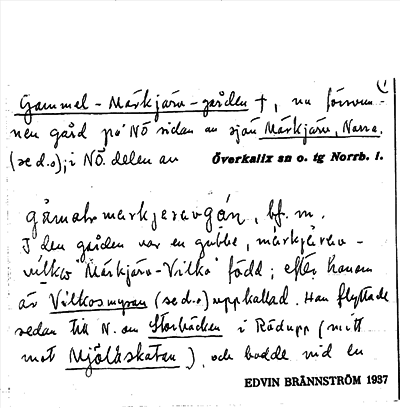 1
Gammel-Märkjärv-gården †, nu försvun-
nen gård på NÖ sidan av sjön Märkjärv, Norra.
(se d.o); i NÖ. delen av Överkalix sn o. tg Norrb. l.
gåmalmarkjeravgån, bf. m.
I den gården var en gubbe, märkjärav-
vilkw Märkjärv-Vilko född; efter honom
är Vilkosmyran (se d.o) uppkallad. Han flyttade
sedan till N. om Storbäcken i Rödupp (mitt
mot Mjölåskatan), och bodde vid en
EDVIN BRÄNNSTRÖM 1937